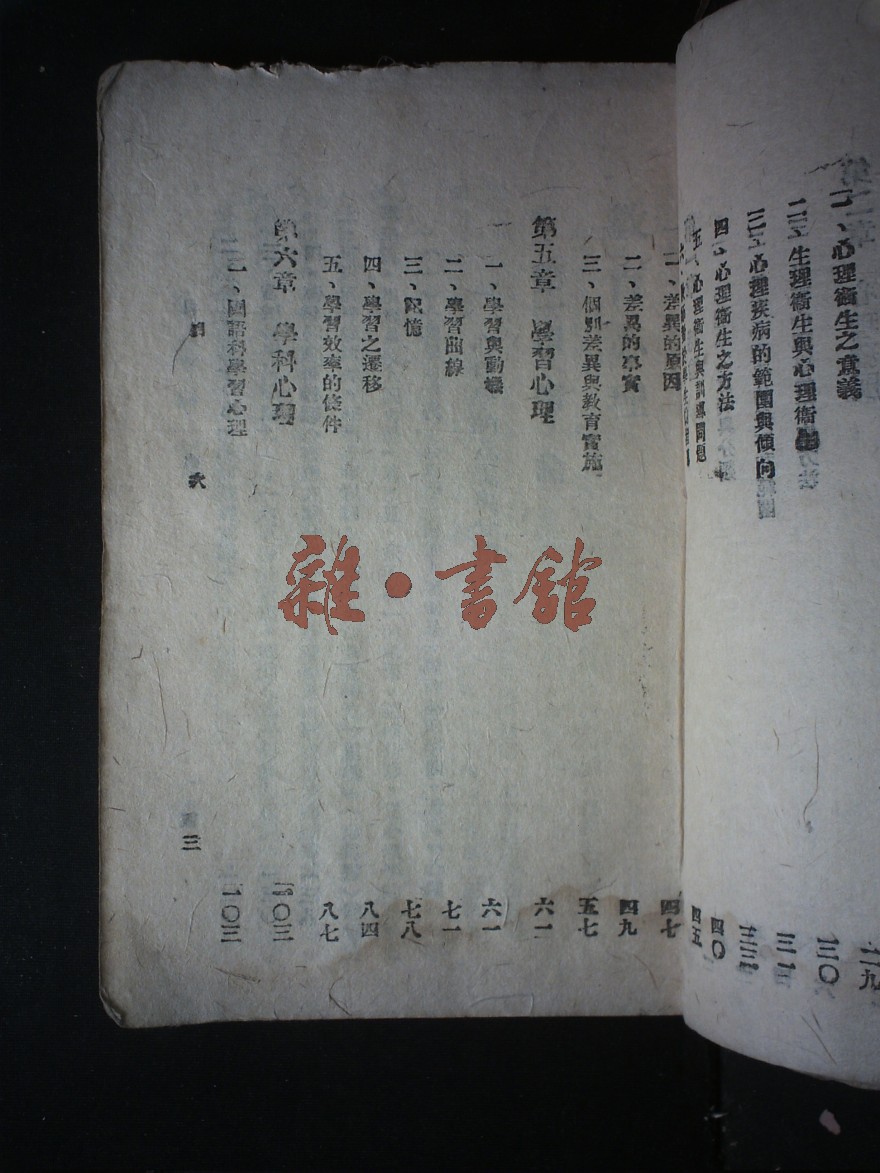 一、心理衞生之意義 二九
二、生理衞生與心理衞生 三〇
三、心理疾病的範圍與傾向
四、心理衞生之方法 四〇
五、心理衞生與訓導問題 四五
一、差異的原因 四七
二、差異的事實 四九
三、個別差異與教育實施 五七
第五章 學習心理 六一
一、學習與動機 六一
二、學習曲線 七一
三、記憶 七八
四、學習之遷移 八四
五、學習效率的條件 八七
第六章 學科心理 一〇三
一、國語科學習心理 一〇三
目次 三
雜·書舘